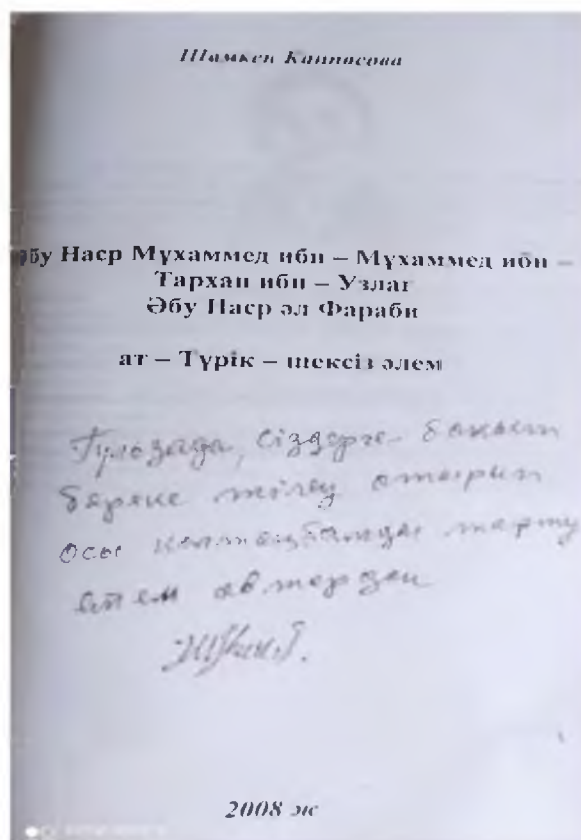 Шамкен Каппасова
Әбу Наср Мұхаммед ибн – Мұхаммед ибн –
Тархан ибн – Узлаг
Әбу Наср әл Фараби
ат – Түрік – шексіз әлем
сіздерге бақыт
береке тілеп отырып
осы қолтаңбамды тарту
етем автордан
2008 ж